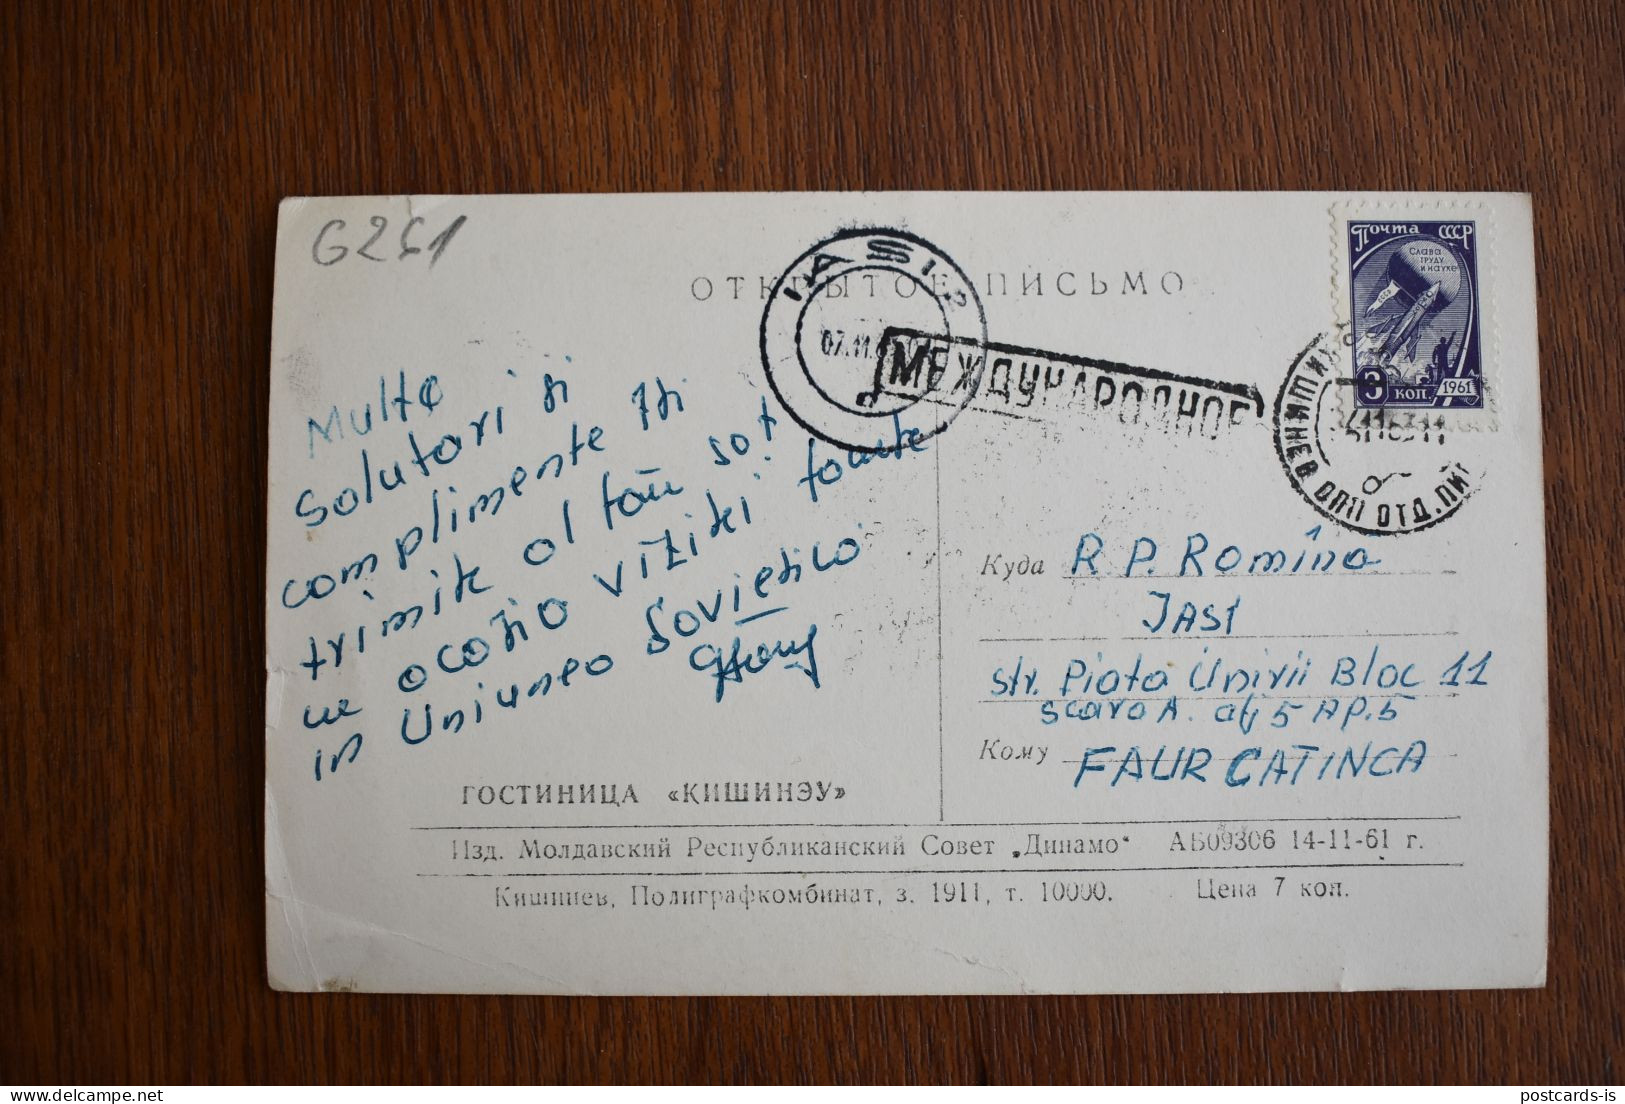 6261
ОТКРЫТОЕ ПИСЬМО
IAȘI 2
07.11.6
МЕЖДУНАРОДНОЕ
Почта СССР
СЛАВА
ТРУДУ
И НАУКЕ
3 КОП. 1961
КИШИНЕВ ОПП ОТД.ПИ
Multe
salutari si
complimente iti
trimite al tău soț
cu ocazia vizitei foarte
in Uniunea Sovietica
Куда R. P. Romîna
JASI
str. Piata Unirii Bloc 11
scara A. etj 5 AP. 5
Кому FAUR CATINCA
ГОСТИНИЦА «КИШИНЭУ»
Изд. Молдавский Республиканский Совет „Динамо“ АБ09306 14-11-61 г.
Кишинев, Полиграфкомбинат, з. 1911, т. 10000. Цена 7 коп.
postcards-is